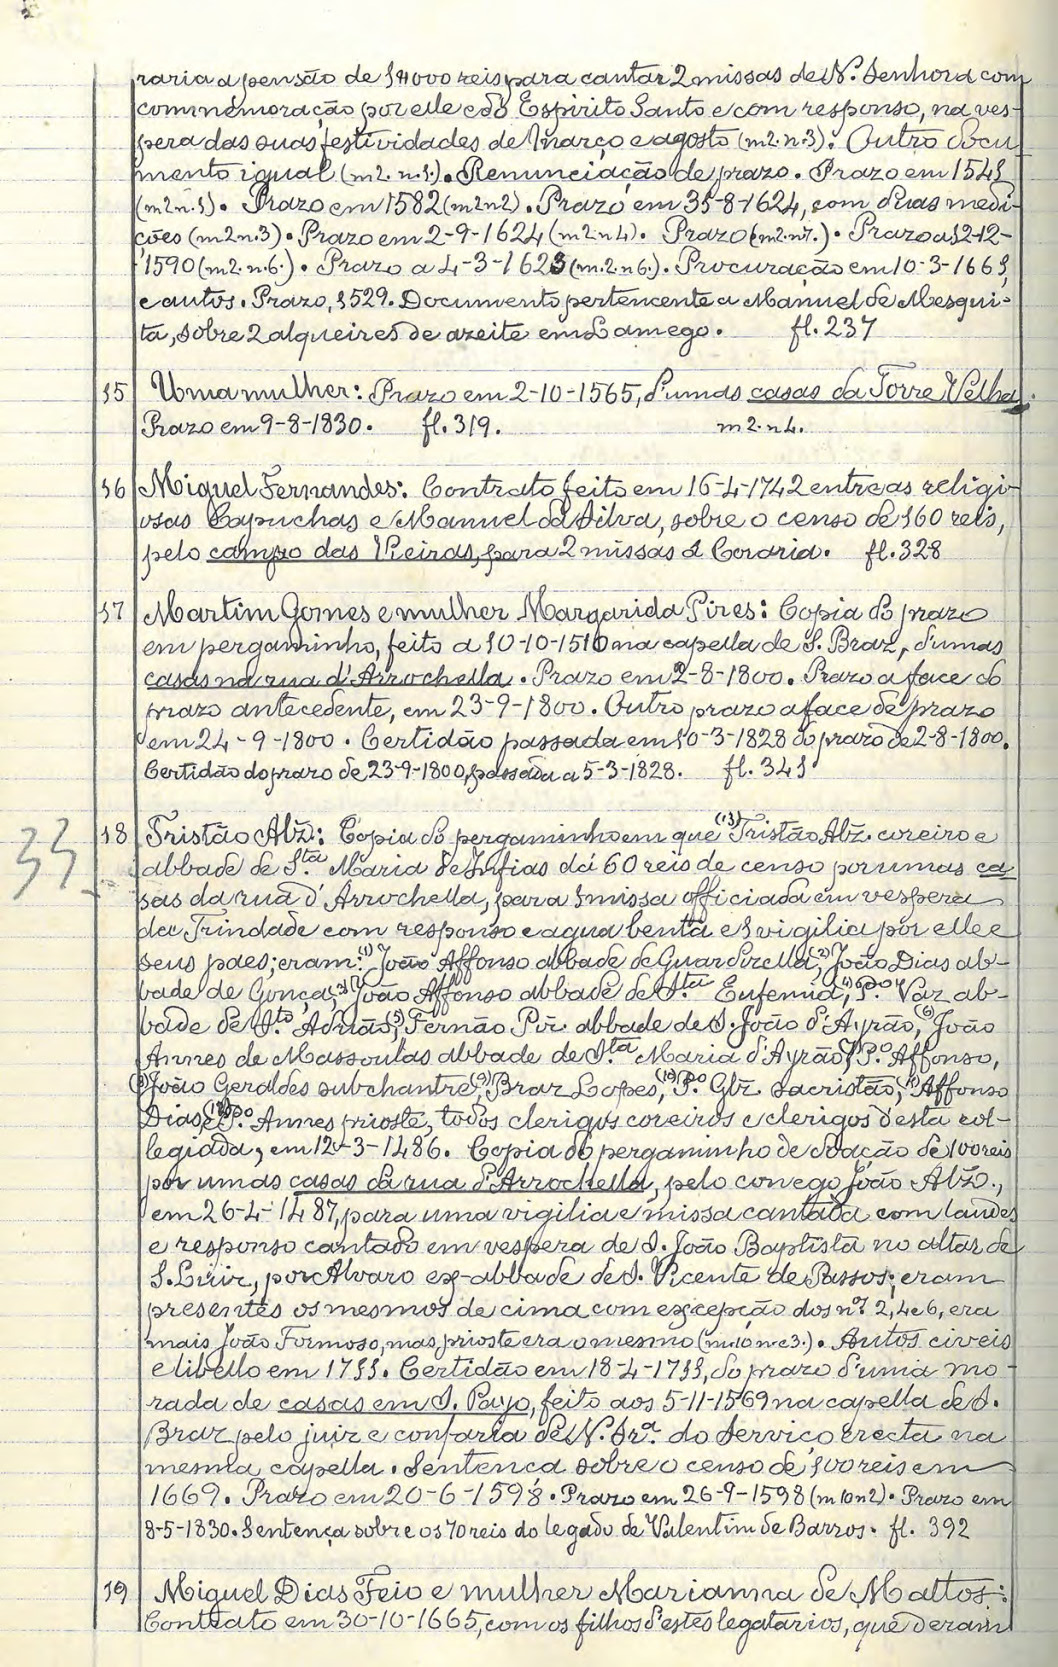 raria a pensão de 1$000 reis para cantar 2 missas de N. Senhora com
commemoração por elle e do Espirito Santo e com responso, na ves-
pera das suas festividades de Março e agosto (m2. n.3). Outro docu
mento igual (m2. n.1.). Renunciação de prazo. Prazo em 1541
(m2 n.1). Prazo em 1582 (m2 n2). Prazo em 31-8-1624, com duas medi-
ções (m2 n.3). Prazo em 2-9-1624 (m2 n4). Prazo (m2 n7.). Prazo a 12-12-
1590 (m2. n.6.). Prazo a 4-3-1623 (m.2 n6.). Procuração em 10-3-1661,
e autos. Prazo, 1529. Documento pertencente a Manuel de Mesqui-
ta, sobre 2 alqueires de azeite em Lamego. fl. 237
15 Uma mulher: Prazo em 2-10-1565, d'umas casas da Torre Velha.
Prazo em 9-8-1830. fl. 319. m2. n4.
16 Miguel Fernandes: Contrato feito em 16-4-1742 entre as religi-
osas Capuchas e Manuel da Silva, sobre o censo de 160 reis,
pelo campo das Vieiras, para 2 missas á Coraria. fl. 328
17 Martim Gomes e mulher Margarida Pires: Copia do prazo
em pergaminho, feito a 10-10-1510 na capella de S. Braz, d'umas
casas na rua d'Arrochella. Prazo em 2-8-1800. Prazo a face do
prazo antecedente, em 23-9-1800. Outro prazo a face de prazo
em 24-9-1800. Certidão passada em 10-3-1828 do prazo de 2-8-1800.
Certidão do prazo de 23-9-1800, passada a 5-3-1828. fl. 341.
18 Tristão Alz̃: Copia do pergaminho em que (13) Tristão Alz̃. coreiro e
abbade de Sta. Maria de Infias dá 60 reis de censo por umas ca
sas da rua d'Arrochella, para 1 missa officiada em vespera
da Trindade com responso e agua benta e 1 vigilia por elle e
seus paes; eram: (1) João Affonso abbade de Guardizella, (2) João Dias ab-
bade de Gonça, (3) João Affonso abbade de Sta Eufemia, (4) Po. Vaz ab-
bade de Sto Adrião, (5) Fernão Pir̃. abbade de S. João d'Ayrão, (6) João
Annes de Massoulas abbade de Sta Maria d'Ayrão, (7) Po. Affonso,
(8) João Geraldes subchantre, (9) Braz Lopes, (10) Po Glz̃. sacristão, (11) Affonso
Dias, (12) e Po. Annes prioste, todos clerigos coreiros e clerigos d'esta col-
legiada, em 12-3-1486. Copia do pergaminho de doação de 100 reis
por umas casas da rua d'Arrochella, pelo conego João Alz̃.,
em 26-4-1487, para uma vigilia e missa cantada com laudes
e responso cantado em vespera de S. João Baptista no altar de
S. Luiz, por Alvaro ex-abbade de S. Vicente de Passos; eram
presentes os mesmos de cima com excepção dos nos. 2, 4 e 6, era
mais João Formoso, mas prioste era o mesmo (m.10 n e 3.). Autos civeis
e libello em 1711. Certidão em 18-4-1711, do prazo d'uma mo-
rada de casas em S. Payo, feito aos 5-11-1569 na capella de S.
Braz pelo juiz e confraria de N. Sra. do Serviço erecta na
mesma capella. Sentença sobre o censo de 100 reis em
1669. Prazo em 20-6-1598. Prazo em 26-9-1598 (m 10 n2). Prazo em
8-5-1830. Sentença sobre os 70 reis do legado de Valentim de Barros. fl. 392
19 Miguel Dias Feio e mulher Marianna de Mattos:
Contrato em 30-10-1665, com os filhos d'estes legatarios, que deram